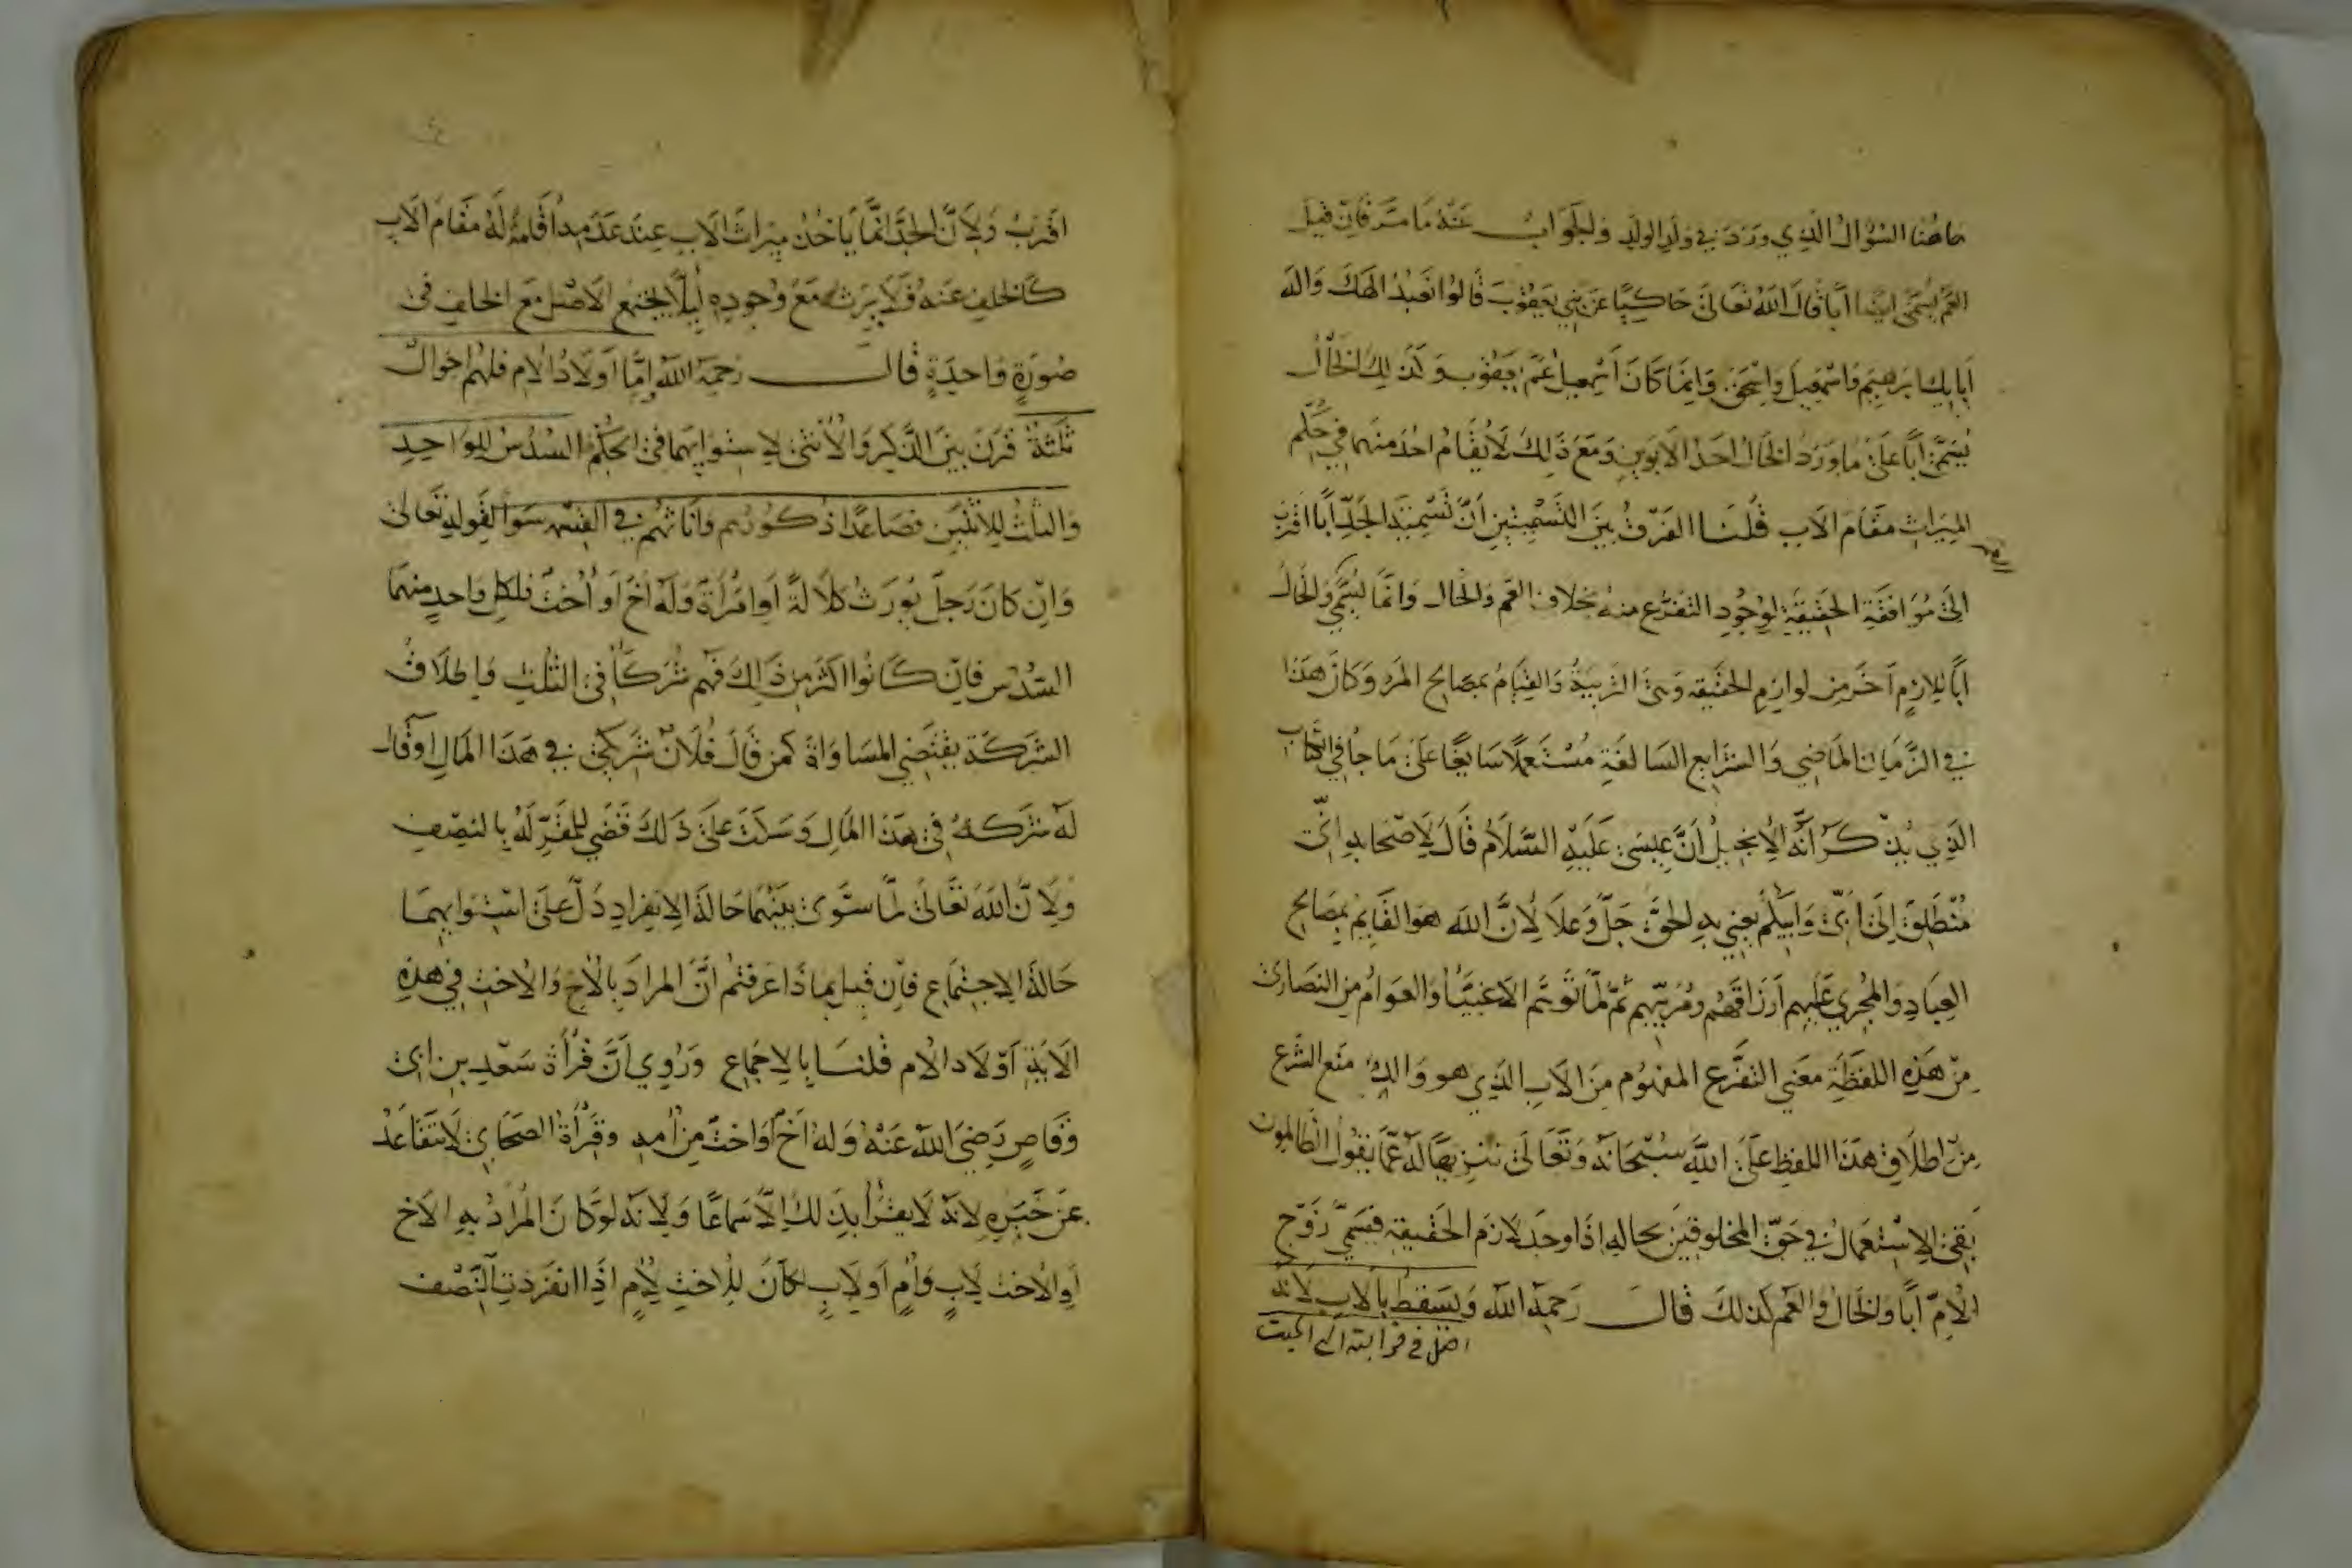 هاهنا السؤال الذي ورد في ولد الولد والجواب عنه ما مر فان قيل
العم يسمى ايضا ابا قال الله تعالى حاكيا عن بني يعقوب قالوا نعبد الهك واله
ابايك ابرهيم واسمعيل واسحق وانما كان اسمعيل عم يعقوب وكذلك الخال
يسمى ابا على ما ورد الخال احد الابوين ومع ذلك لا يقام احد منهما في حكم
الميراث مقام الاب قلنا الفرق بين التسميتين ان تسمية الجد ابا اقرب
الى موافقة الحقيقة لوجود التفرع منه بخلاف العم والخال وانما يسمى والخال
ابا للازم آخر من لوازم الحقيقه وهي التربية والقيام بمصالح المرء وكان هذا
في الزمان الماضي والشرايع السالفة مستعملا سايغا على ما جا في كتاب
الذي يذكر انه الانجيل ان عيسى عليه السلام قال لاصحابه اني
منطلق الى ابي وابيكم يعني به الحق جل وعلا لان الله هو القايم بمصالح
العباد والمجري عليهم ارزاقهم ومربيهم ثم لما توهم الاغبيا والعوام من النصارى
من هذه اللفظة معنى التفرع المفهوم من الاب الذي هو والد منع الشرع
من اطلاق هذا اللفظ على الله سبحانه وتعالى تنزيها له عما يقول الظالمون
بقي الاستعمال في حق المخلوقين بحاله اذا وجد لازم الحقيقه فيسمى زوج
الام ابا والخال والعم كذلك قال رحمه الله ويسقط بالاب لانه
اصل في قرابته الى الميت
اقرب ولان الجد انما ياخذ ميراث الاب عند عدمه اقامة له مقام الاب
كالخلف عنه فلا يرث مع وجوده ليلا يجتمع الاصل مع الخلف في
صورة واحدة قال رحمه الله واما اولاد الام فلهم احوال
ثلثة قرن بين الذكر والانثى لاستوايهما في الحكم السدس للواحد
والثلث للاثنين فصاعدا ذكورهم واناثهم في القسمه سوا لقوله تعالى
وان كان رجل يورث كلالة او امرأة وله اخ او أخت فلكل واحد منهما
السدس فان كانوا اكثر من ذلك فهم شركا في الثلث واطلاق
الشركة يقتضي المساواة كمن قال فلان شريكي في هذا المال او قال
له شركة في هذا المال وسكت على ذلك قضي للمقر له بالنصف
ولان الله تعالى لما سوى بينهما حالة الانفراد دل على استوايهما
حالة الاجتماع فان قيل بما ذا عرفتم ان المراد بالاخ والاخت في هذه
الاية اولاد الام قلنا بالاجماع وروي ان قرأة سعد بن ابي
وقاص رضي الله عنه وله اخ او اخت من امه وقرأة الصحابي لا تتقاعد
عن خبره لانه لا يقرأ بذلك الا سماعا ولانه لو كان المراد به الاخ
او الاخت لاب وأم او لاب لكان للاخت لام اذا انفردت النصف